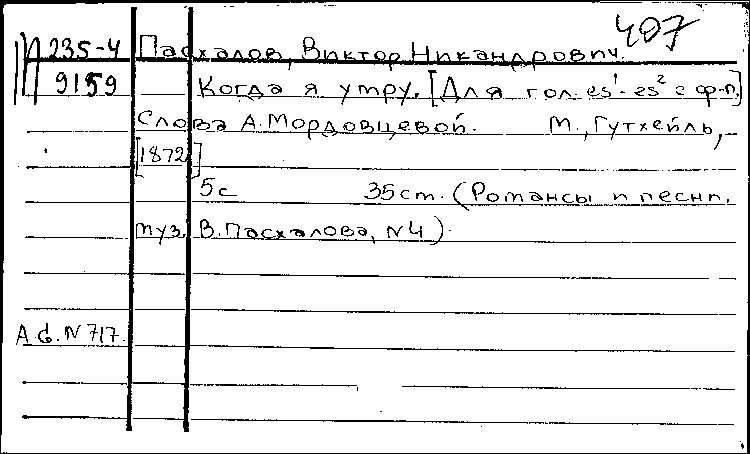 407
П 235-4 Пасхалов, Виктор Никандрович.
9159 Когда я умру. [Для гол. es¹-es² с ф-п.]
Слова А. Мордовцевой. М., Гутхейль,
[1872]
5с 35 ст. (Романсы и песни.
муз. В. Пасхалова, N4).
А.б. N 717.